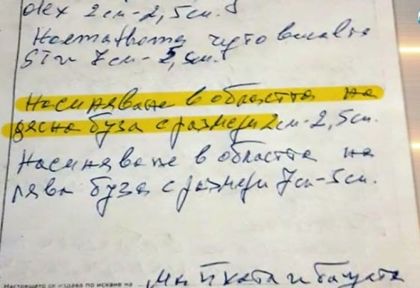 2см-2,5см.
7см-5,5см.
Насиняване в областта на
дясна буза с размери 2см-2,5см.
Насиняване в областта на
лява буза с размери 7см-5см.
Настоящето се издава по искане на
и бащата